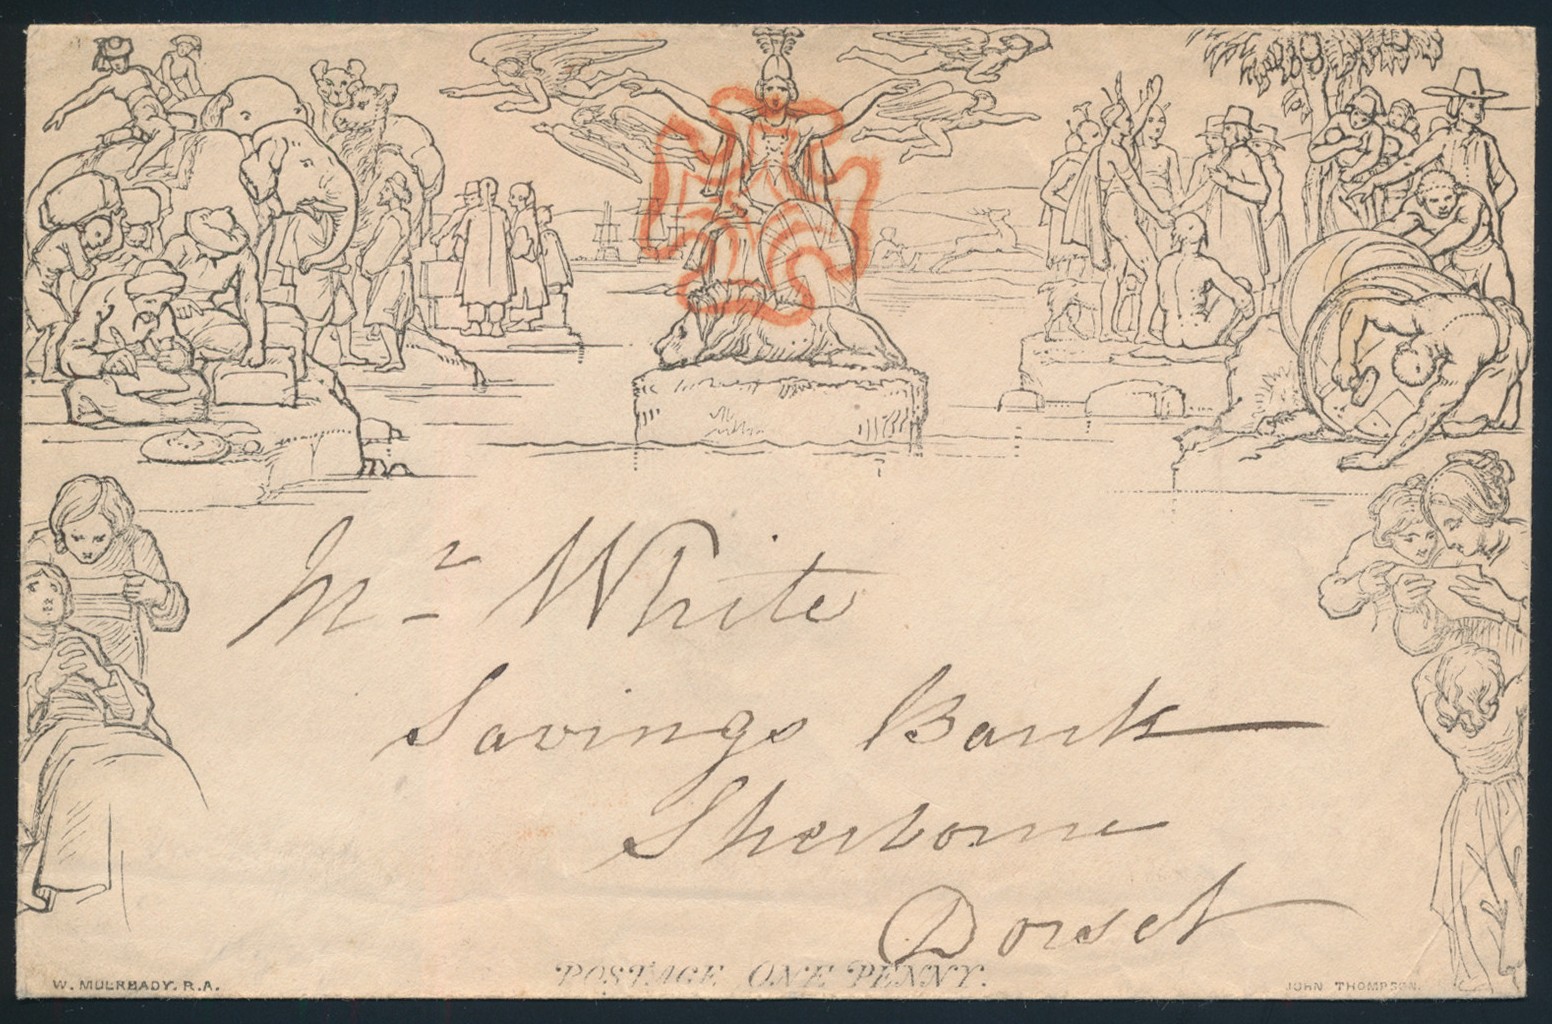 Mr White
Savings Bank
Sherborne
Dorset
POSTAGE ONE PENNY.
W. MULREADY. R.A.
JOHN THOMPSON.